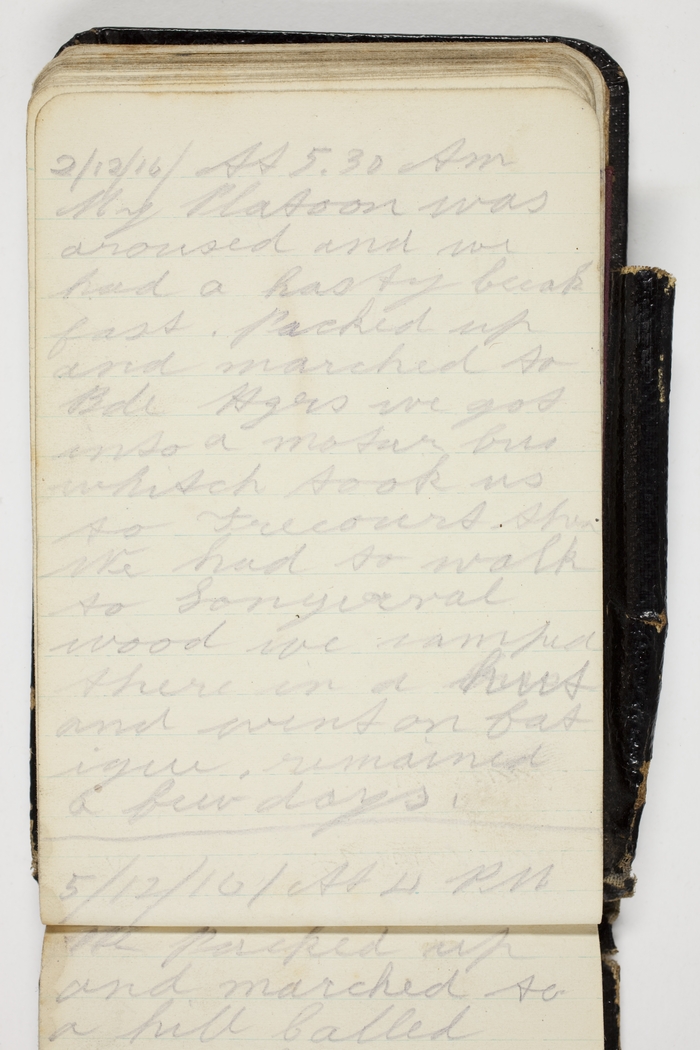 2/12/16/ At 5.30 Am
My Platoon was
aroused and we
had a hasty break
fast. Packed up
and marched to
Bde Hqrs we got
into a motar bus
whitch took us
to Frecourt then
We had to walk
to Longuerval
wood we camped
there in a hut
and went on fat
igue, remained
a few days.
5/12/16/ At 4 PM
We packed up
and marched to
a hill called